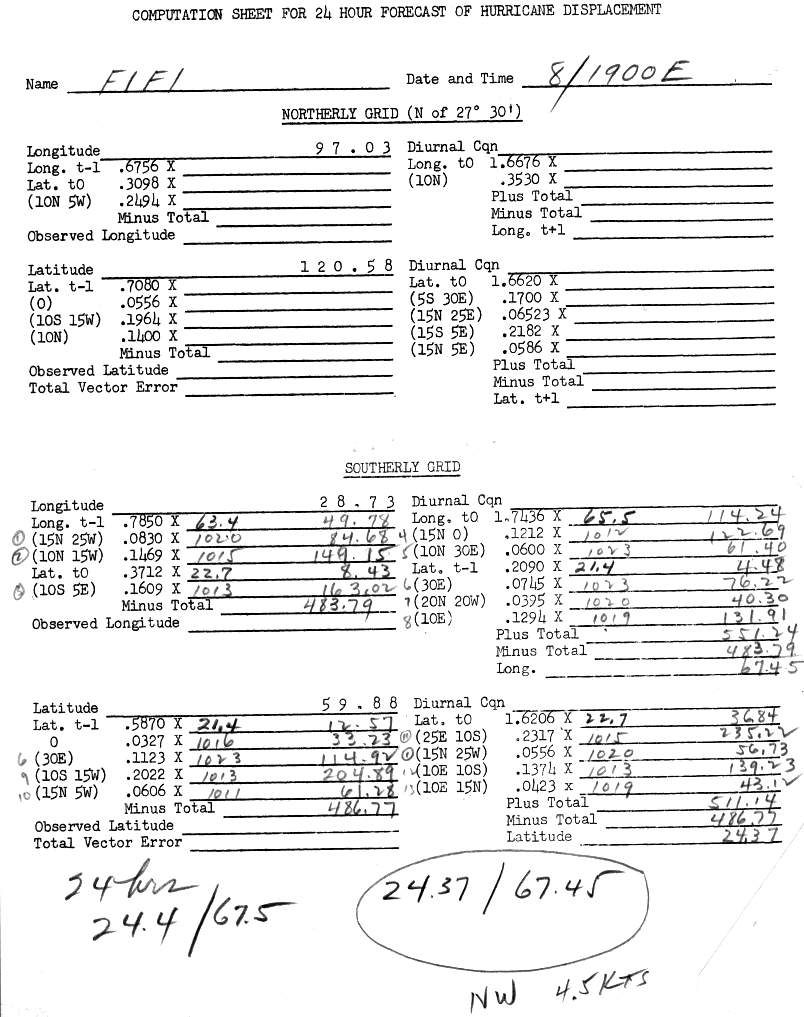 COMPUTATION SHEET FOR 24 HOUR FORECAST OF HURRICANE DISPLACEMENT
Name FIFI Date and Time 8/1900E
NORTHERLY GRID (N of 27° 30')
Longitude 97.03 Diurnal Cqn
Long. t-1 .6756 X Long. t0 1.6676 X
Lat. t0 .3098 X (10N) .3530 X
(10N 5W) .2494 X Plus Total
Minus Total Minus Total
Observed Longitude Long. t+1
Latitude 120.58 Diurnal Cqn
Lat. t-1 .7080 X Lat. t0 1.6620 X
(0) .0556 X (5S 30E) .1700 X
(10S 15W) .1964 X (15N 25E) .06523 X
(10N) .1400 X (15S 5E) .2182 X
Minus Total (15N 5E) .0586 X
Observed Latitude Plus Total
Total Vector Error Minus Total
Lat. t+1
SOUTHERLY GRID
Longitude 28.73 Diurnal Cqn
Long. t-1 .7850 X 63.4 49.78 Long. t0 1.7436 X 65.5 114.24
1 (15N 25W) .0830 X 1020 84.68 4 (15N 0) .1212 X 1012 122.69
2 (10N 15W) .1469 X 1015 149.15 5 (10N 30E) .0600 X 1023 61.40
Lat. t0 .3712 X 22.7 8.43 Lat. t-1 .2090 X 21.4 4.48
3 (10S 5E) .1609 X 1013 163.02 6 (30E) .0745 X 1023 76.22
Minus Total 483.79 7 (20N 20W) .0395 X 1020 40.30
Observed Longitude 8 (10E) .1294 X 1019 131.91
Plus Total 551.24
Minus Total 483.79
Long. 67.45
Latitude 59.88 Diurnal Cqn
Lat. t-1 .5870 X 21.4 12.57 Lat. t0 1.6206 X 22.7 36.84
0 .0327 X 1016 33.23 11 (25E 10S) .2317 X 1015 235.22
6 (30E) .1123 X 1023 114.92 1 (15N 25W) .0556 X 1020 56.73
9 (10S 15W) .2022 X 1013 204.89 12 (10E 10S) .1374 X 1013 139.23
10 (15N 5W) .0606 X 1011 61.28 13 (10E 15N) .0423 x 1019 43.12
Minus Total 486.77 Plus Total 511.14
Observed Latitude Minus Total 486.77
Total Vector Error Latitude 24.37
24 hrs
24.4/67.5 24.37/67.45
NW 4.5 KTS